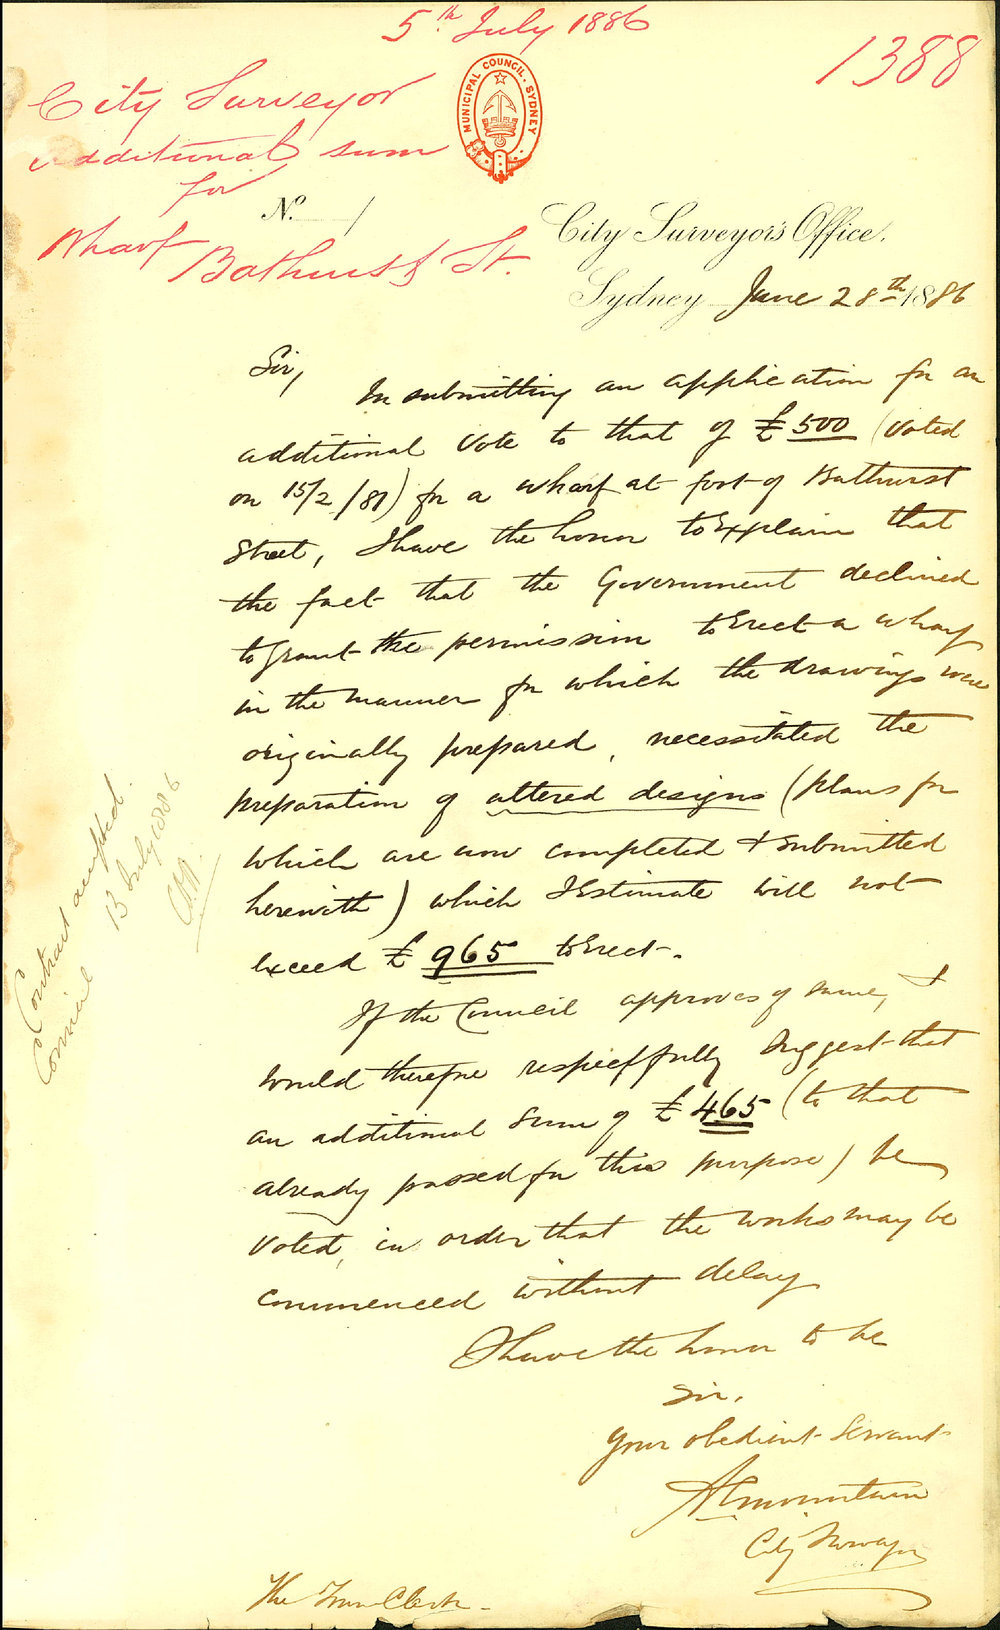 5th July 1886
1388
City Surveyor
additional sum
for
Wharf Bathurst St.
MUNICIPAL COUNCIL. SYDNEY
No. /
City Surveyor's Office.
Sydney June 28th 1886
Sir,
In submitting an application for an
additional vote to that of £500 (voted
on 15/2/81) for a wharf at foot of Bathurst
Street, I have the honor to explain that
the fact that the Government declined
to grant the permission to erect a wharf
in the manner for which the drawings were
originally prepared, necessitated the
preparation of altered designs (plans for
which are now completed & submitted
herewith) which I estimate will not
exceed £965 to erect.
If the Council approves of same, I
would therefore respectfully suggest that
an additional sum of £465 (to that
already passed for this purpose) be
voted, in order that the works may be
commenced without delay
I have the honor to be
Sir,
your obedient servant
A C Mountain
City Surveyor
The Town Clerk.
Contract accepted.
Council 13 July 1886